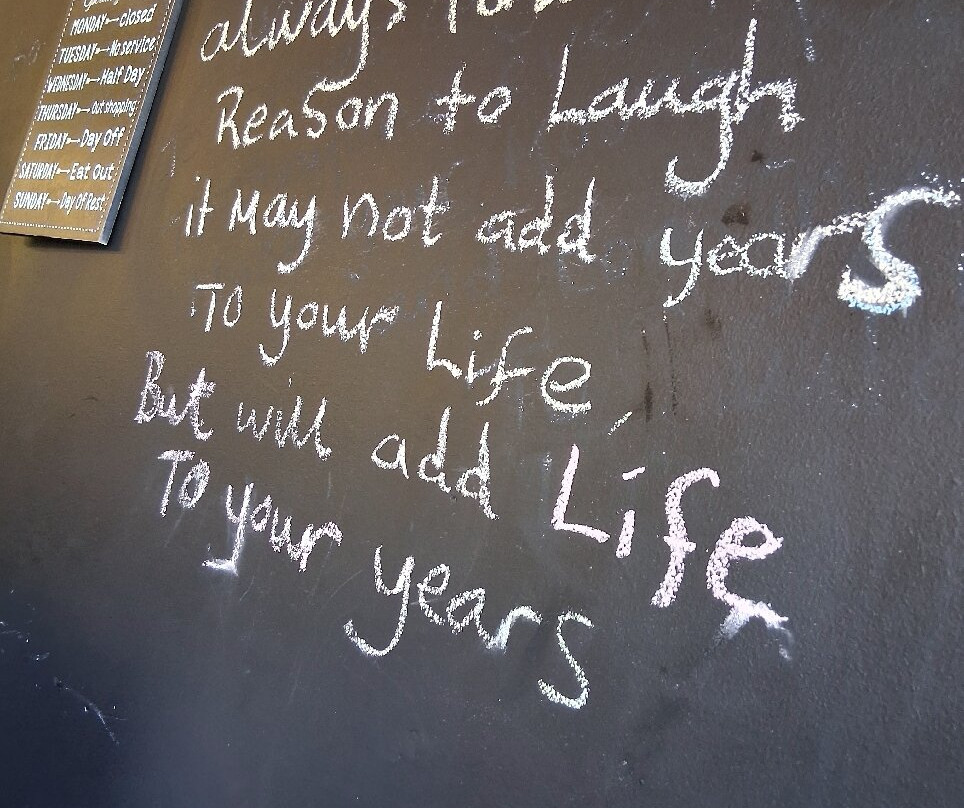 MONDAY closed
TUESDAY No service
WEDNESDAY Half Day
THURSDAY Out shopping
FRIDAY Day Off
SATURDAY Eat Out
SUNDAY Day Of Rest
always
Reason to Laugh
it May not add years
To your Life
But will add Life
To your years